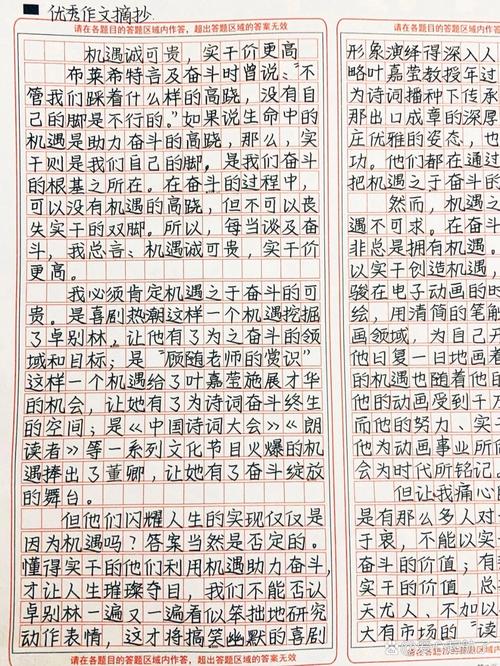 ■ 优秀作文摘抄
请在各题目的答题区域内作答，超出答题区域的答案无效
机遇诚可贵，实干价更高
布莱希特言及奋斗时曾说："不
管我们踩着什么样的高跷，没有自
己的脚是不行的。"如果说生命中的
机遇是助力奋斗的高跷，那么，实
干则是我们自己的脚，是我们奋斗
的根基之所在。在奋斗的过程中，
可以没有机遇的高跷，但不可以丧
失实干的双脚。所以，每当谈及奋
斗，我总言：机遇诚可贵，实干价
更高。
我必须肯定机遇之于奋斗的可
贵。是喜剧热潮这样一个机遇挖掘
了卓别林，让他有了为之奋斗的领
域和目标；是"顾随老师的赏识"
这样一个机遇给了叶嘉莹施展才华
的机会，让她有了为诗词奋斗终生
的空间；是《中国诗词大会》《朗
读者》等一系列文化节目火爆的机
遇捧出了董卿，让她有了奋斗绽放
的舞台。
但他们闪耀人生的实现仅仅是
因为机遇吗？答案当然是否定的。
懂得实干的他们利用机遇助力奋斗，
才让人生璀璨夺目，我们不能否认
卓别林一遍又一遍看似笨拙地研究
动作表情，这才将搞笑幽默的喜剧
请在各题目的答题区域内作答，超出答题区域的答案无效
请在各题目的答题区域内
形象演绎得深入人
略叶嘉莹教授年过
为诗词播种下传承
那出口成章的深厚
庄优雅的姿态，也
功。他们都在通过
把机遇之于奋斗的
然而，机遇之
遇不可求。在奋斗
非总是拥有机遇。
以实干创造机遇，
骏在电子动画的时
绘，用清简的笔触
画领域，为自己开
他日复一日地画着
的机遇也随着他的
他的动画受到千万
而他的努力、实干
他为动画事业所
会为时代所铭记。
但让我痛心的
是有那么多人对
于衷，不能以实
奋斗的价值；有
实干的价值，总
天尤人、不加以
大有市场的"读
请在各题目的答题区域内